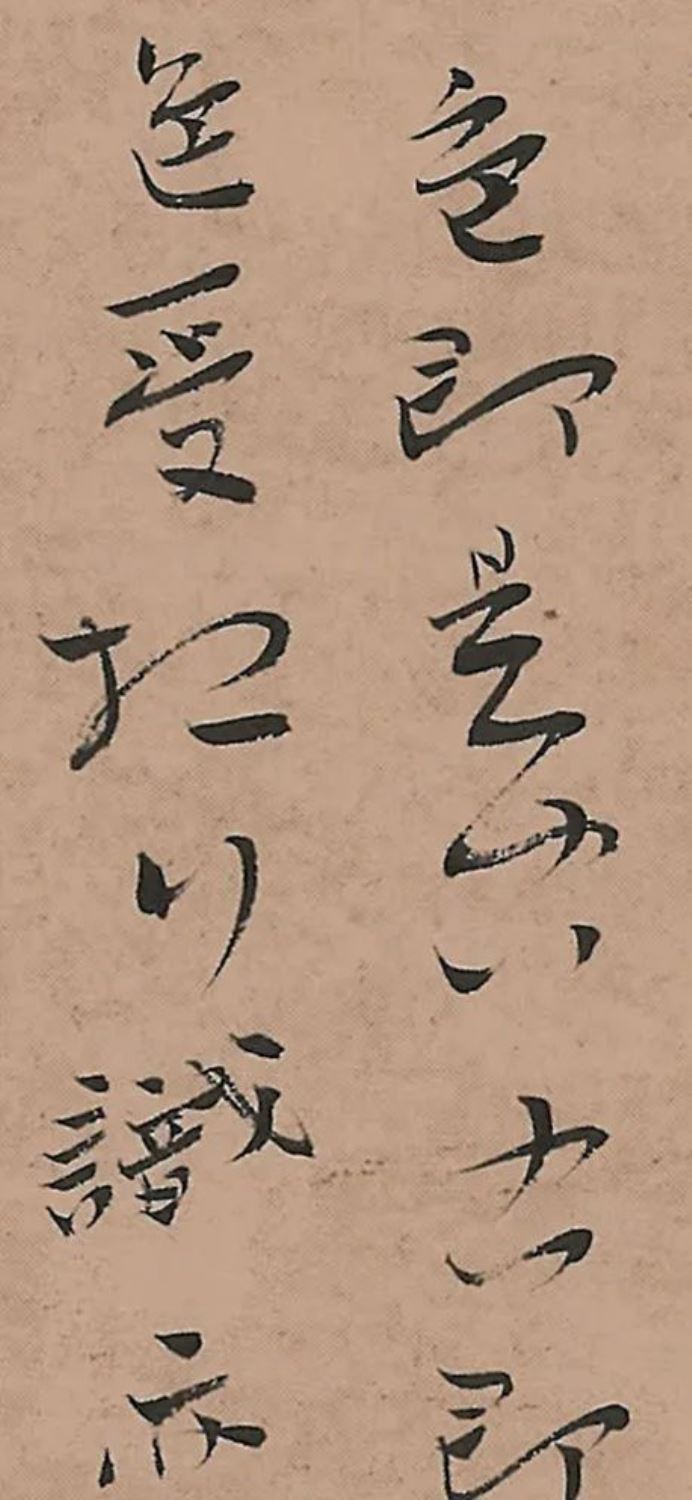 色即是空空即
色受想行識亦